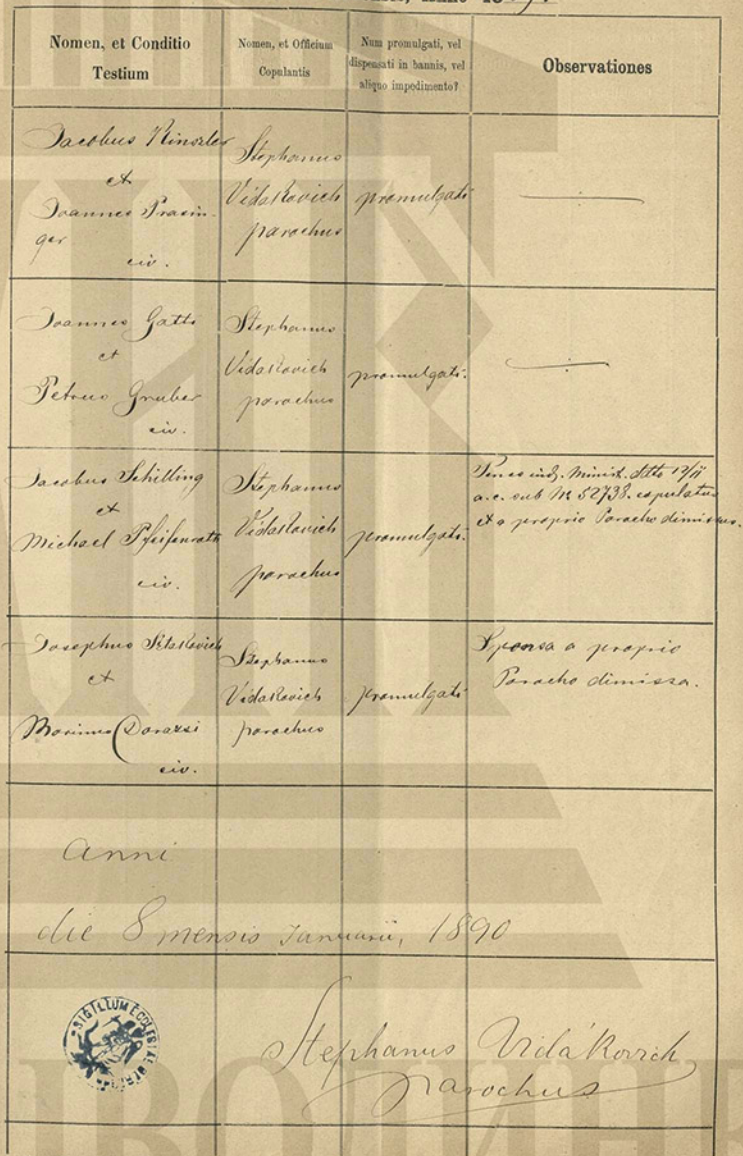 Nomen, et Conditio
Testium
Nomen, et Officium
Copulantis
Num promulgati, vel
dispensati in bannis, vel
aliquo impedimento?
Observationes
Jacobus
et
Joannes Prasin-
ger
civ.
Stephanus
Vidakovich
parochus
promulgati
Joannes Gatti
et
Petrus Gruber
civ.
Stephanus
Vidakovich
parochus
promulgati.
Jacobus Schilling
et
Michael Pfeifenroth
civ.
Stephanus
Vidakovich
parochus
promulgati.
Minist.
a. c. sub № 52738. copulatus
et a proprio Parocho dimissus.
Josephus
et
Marinus
civ.
Stephanus
Vidakovich
parochus
promulgati
Sponsa a proprio
Parocho dimissa.
anni
die 8 mensis Januarii, 1890
SIGILLUM
Stephanus Vidákovich
parochus